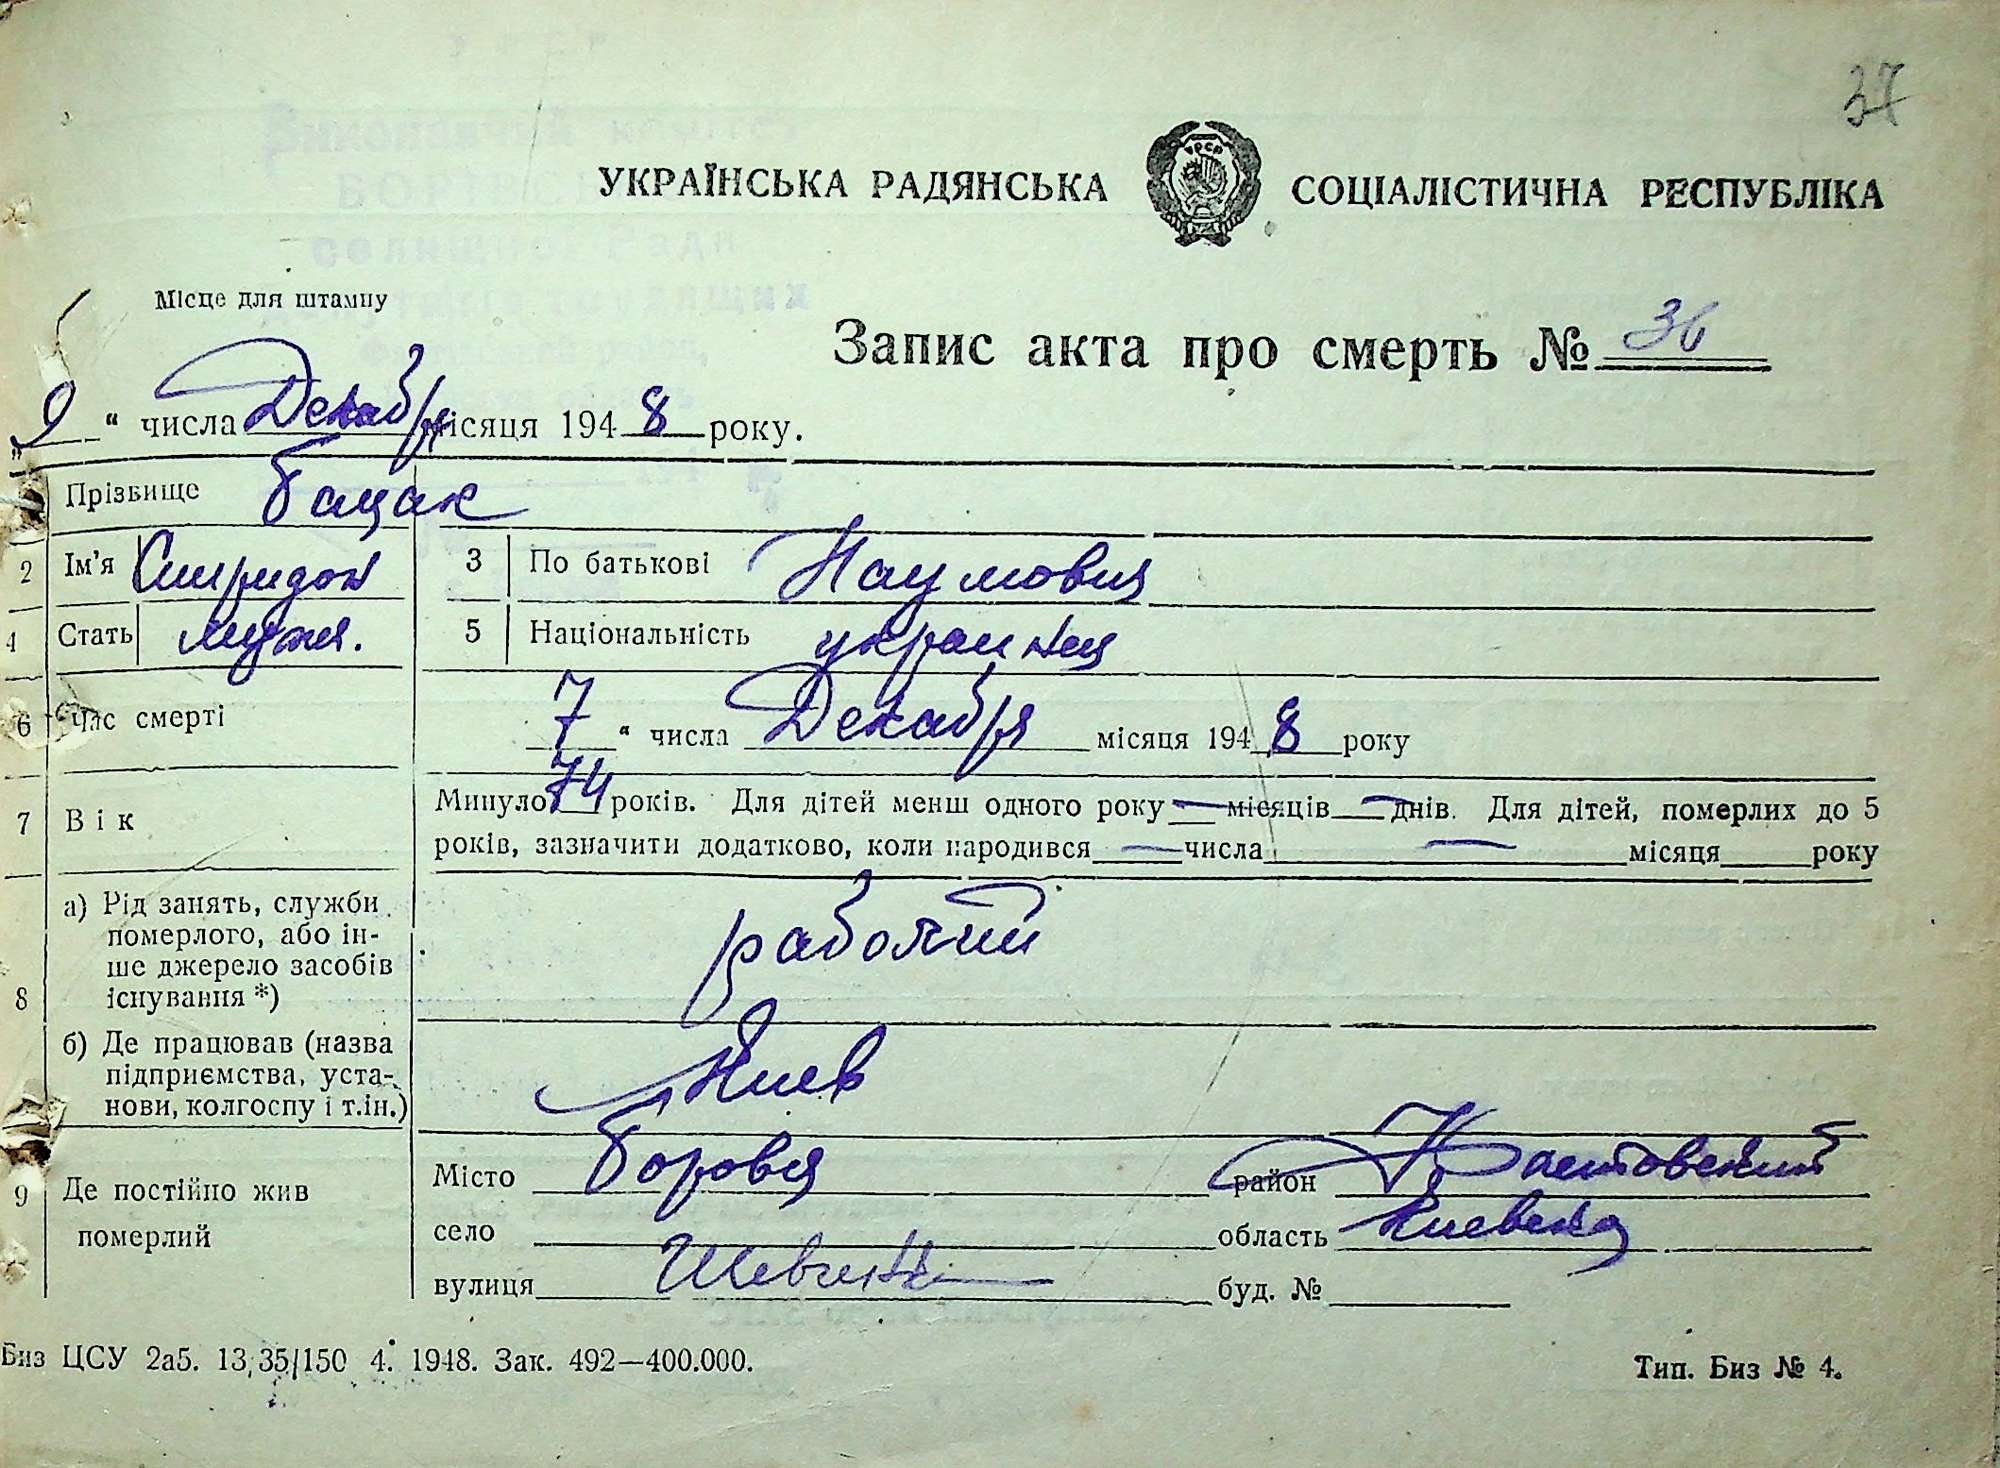 37
УКРАЇНСЬКА РАДЯНСЬКА СОЦІАЛІСТИЧНА РЕСПУБЛІКА
УРСР
Місце для штампу
Запис акта про смерть № 36
„9“ числа Декабр місяця 1948 року.
Прізвище Бацак
2 Ім'я Спиридон 3 По батькові Наумович
4 Стать мужч. 5 Національність украинец
6 Час смерті 7“ числа Декабря місяця 1948 року
7 Вік Минуло 74 років. Для дітей менш одного року — місяців — днів. Для дітей, померлих до 5
років, зазначити додатково, коли народився — числа — місяця року
8 а) Рід занять, служби померлого, або ін-
ше джерело засобів
існування *)
рабочий
б) Де працював (назва
підприємства, уста-
нови, колгоспу і т.ін.)
Киев
9 Де постійно жив
померлий
Місто Боровая район Фастовский
село область Киевская
вулиця буд. №
Биз ЦСУ 2а5. 13,35/150 4. 1948. Зак. 492—400.000. Тип. Биз № 4.